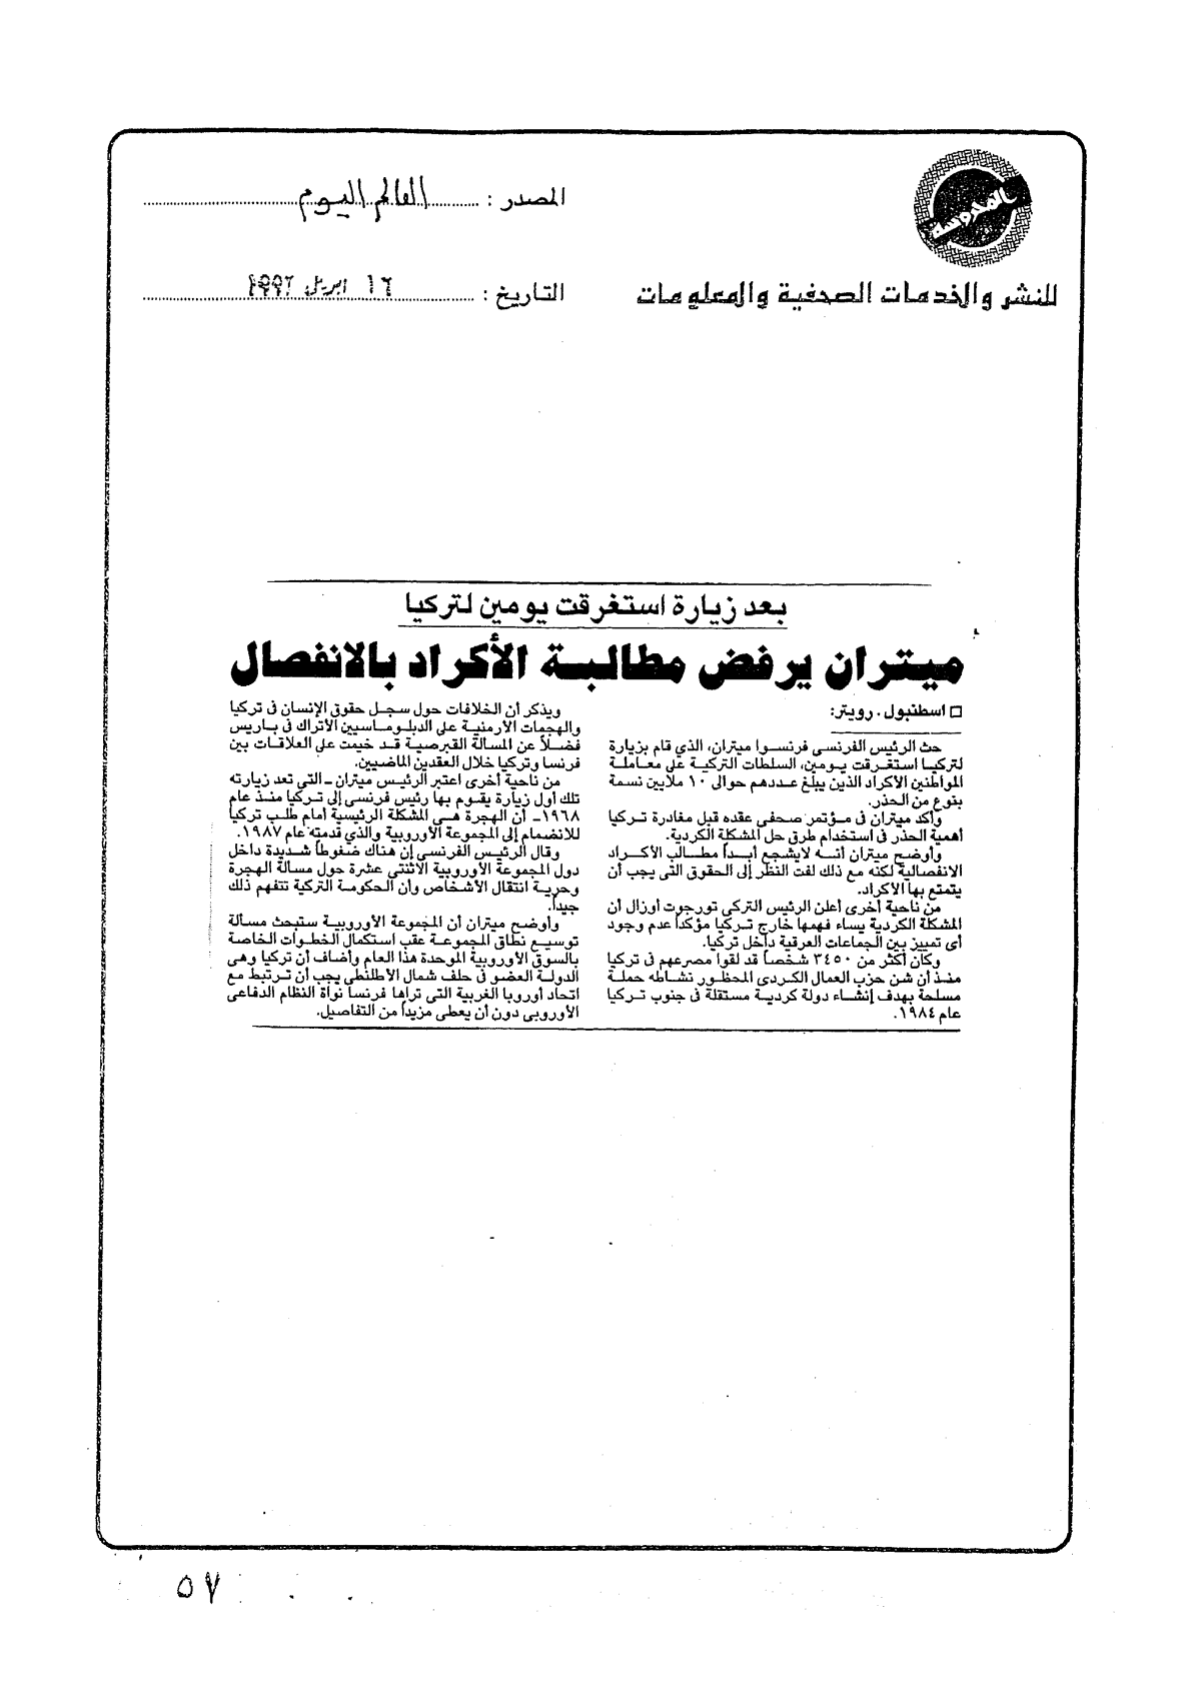 المصدر : العالم اليوم
للنشر والخدمات الصحفية والمعلومات
التاريخ : ١٦ ابريل ١٩٩٢
بعد زيارة استغرقت يومين لتركيا
ميتران يرفض مطالبة الأكراد بالانفصال
□ اسطنبول ـ رويتر:
حث الرئيس الفرنسى فرنسوا ميتران، الذي قام بزيارة
لتركيا استغرقت يومين، السلطات التركية على معاملة
المواطنين الأكراد الذين يبلغ عددهم حوالى ١٠ ملايين نسمة
بنوع من الحذر.
وأكد ميتران فى مؤتمر صحفى عقده قبل مغادرة تركيا
أهمية الحذر فى استخدام طرق حل المشكلة الكردية.
وأوضح ميتران أنه لايشجع أبدا مطالب الأكراد
الانفصالية لكنه مع ذلك لفت النظر إلى الحقوق التى يجب أن
يتمتع بها الأكراد.
من ناحية أخرى أعلن الرئيس التركى تورجوت أوزال أن
المشكلة الكردية يساء فهمها خارج تركيا مؤكدا عدم وجود
أى تمييز بين الجماعات العرقية داخل تركيا.
وكان أكثر من ٣٤٥٠ شخصا قد لقوا مصرعهم فى تركيا
منذ أن شن حزب العمال الكردى المحظور نشاطه حملة
مسلحة بهدف إنشاء دولة كردية مستقلة فى جنوب تركيا
عام ١٩٨٤.
ويذكر أن الخلافات حول سجل حقوق الإنسان فى تركيا
والهجمات الأرمنية على الدبلوماسيين الأتراك فى باريس
فضلا عن المسألة القبرصية قد خيمت على العلاقات بين
فرنسا وتركيا خلال العقدين الماضيين.
من ناحية أخرى اعتبر الرئيس ميتران ـ التى تعد زيارته
تلك أول زيارة يقوم بها رئيس فرنسى إلى تركيا منذ عام
١٩٦٨ـ أن الهجرة هى المشكلة الرئيسية أمام طلب تركيا
للانضمام إلى المجموعة الأوروبية والذي قدمته عام ١٩٨٧.
وقال الرئيس الفرنسى إن هناك ضغوطا شديدة داخل
دول المجموعة الأوروبية الاثنتى عشرة حول مسألة الهجرة
وحرية انتقال الأشخاص وأن الحكومة التركية تتفهم ذلك
جيدا.
وأوضح ميتران أن المجموعة الأوروبية ستبحث مسألة
توسيع نطاق المجموعة عقب استكمال الخطوات الخاصة
بالسوق الأوروبية الموحدة هذا العام وأضاف أن تركيا وهى
الدولة العضو فى حلف شمال الأطلنطى يجب أن ترتبط مع
اتحاد أوروبا الغربية التى تراها فرنسا نواة النظام الدفاعى
الأوروبى دون أن يعطى مزيدا من التفاصيل.
٥٧